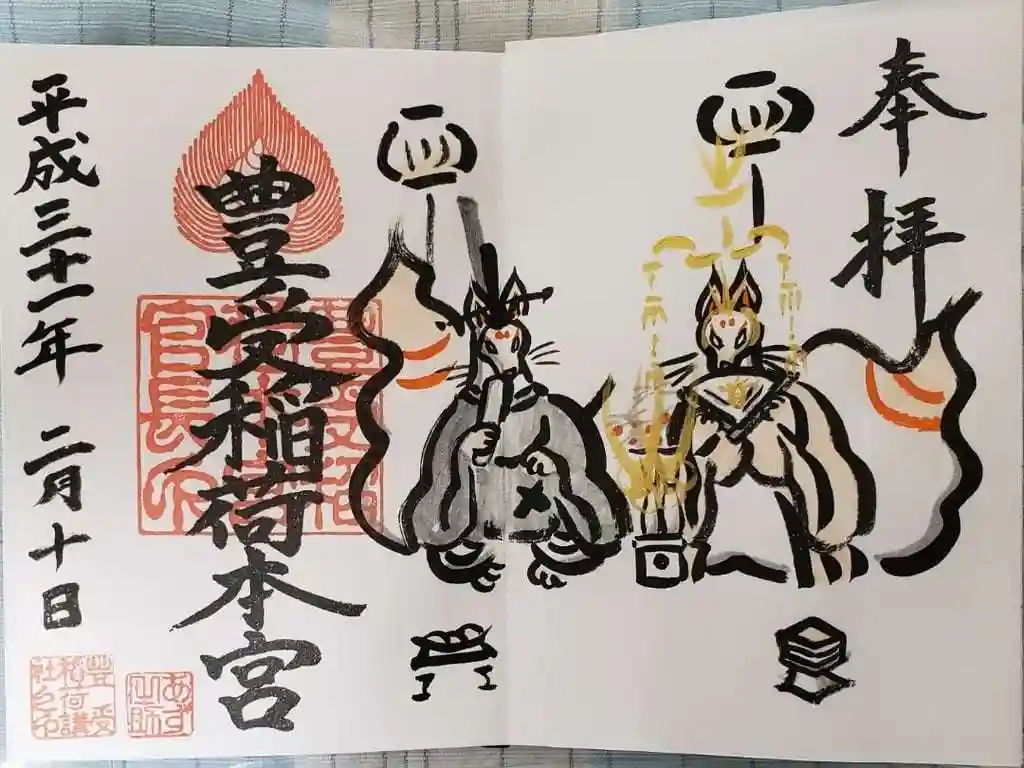 奉拝
豊受稲荷本宮
平成三十一年 二月十日
豊受
稲荷講
社之印
あず
仙師